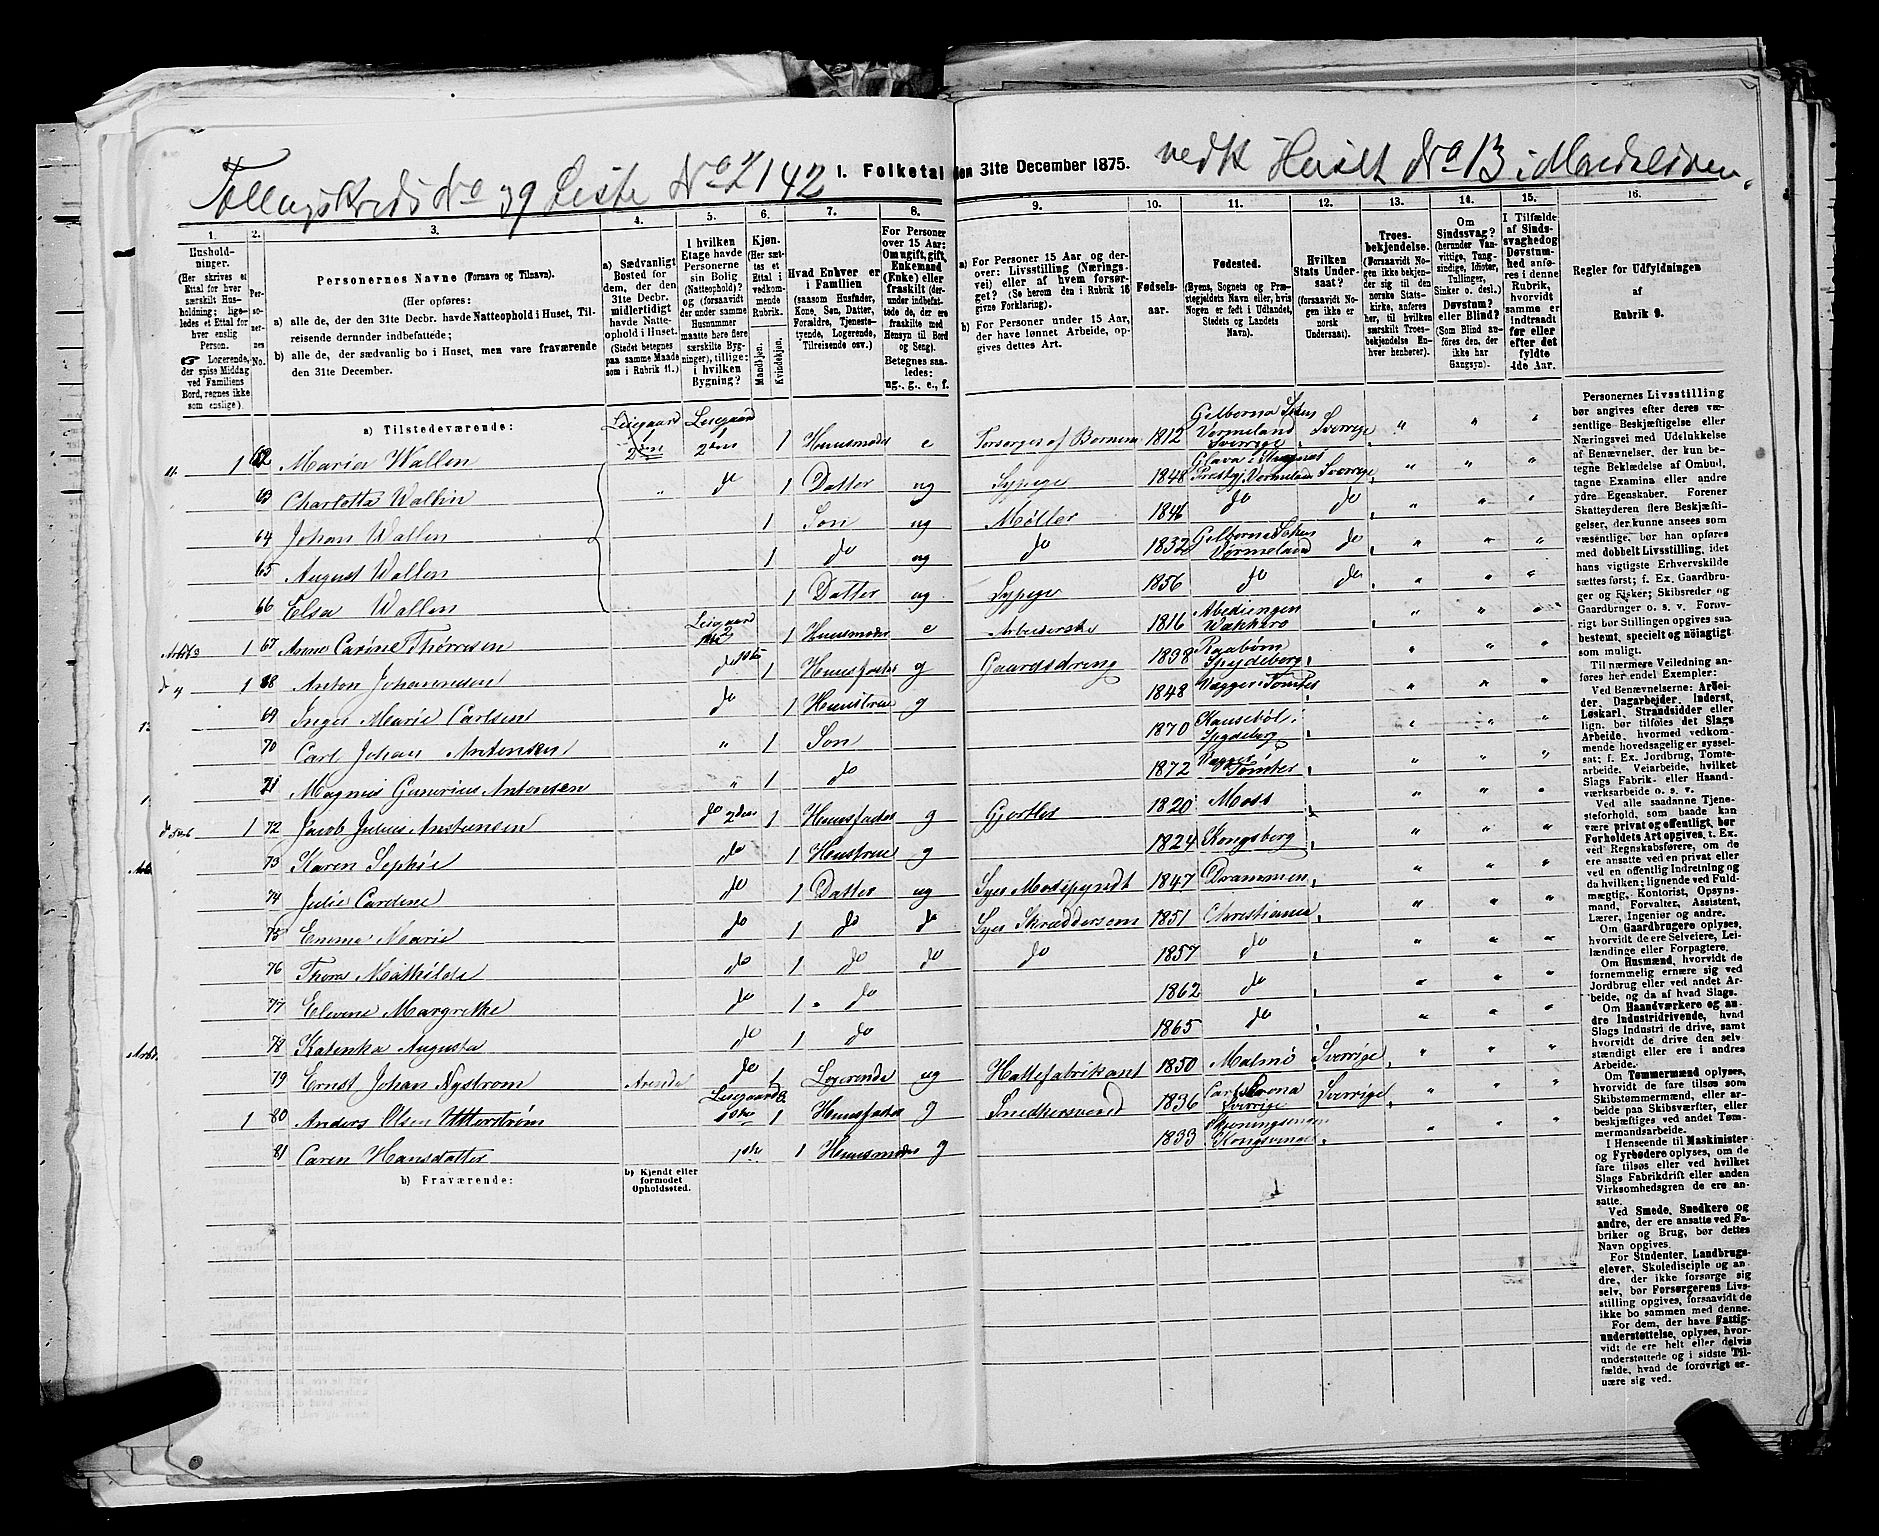 Tællingskreds No 39 Liste No 2142 1. Folketal den 31te December 1875. vedk Huset No 13 i
1. 2. 3. 4. 5. 6. 7. 8. 9. 10. 11. 12. 13. 14. 15. 16.
Husholdninger. (Her skrives et Ettal for hver særskilt Husholdning; ligeledes et Ettal for hver enslig Person. ☞ Logerende, der spise Middag ved Familiens Bord, regnes ikke som enslige).
Personernes No.
Personernes Navne (Fornavn og Tilnavn).
(Her opføres:
a) alle de, der den 31te Decbr. havde Natteophold i Huset, Tilreisende derunder indbefattede;
b) alle de, der sædvanlig bo i Huset, men vare fraværende den 31te December.
a) Sædvanligt Bosted for dem, der den 31te Decbr. midlertidigt havde Natteophold i Huset. (Stedet betegnes paa samme Maade som i Rubrik 11.)
I hvilken Etage havde Personerne sin Bolig (Natteophold)? og (forsaavidt der under samme Husnummer maatte høre flere særskilte Bygninger), tillige: i hvilken Bygning?
Kjøn. (Her sættes et Ettal i vedkommende Rubrik. Mandkjøn. Kvindekjøn.
Hvad Enhver er i Familien (saasom Husfader, Kone, Søn, Datter, Forældre, Tjenestetyende, Logerende, Tilreisende osv.)
For Personer over 15 Aar: Om ugift, gift, Enkemand (Enke) eller fraskilt (derunder indbefattede de, der ere fraskilte med Hensyn til Bord og Seng). Betegnes saaledes: ug., g., e., f.
a) For Personer 15 Aar og derover: Livsstilling (Næringsvei) eller af hvem forsørget? (Se herom den i Rubrik 16 givne Forklaring).
b) For Personer under 15 Aar, der have lønnet Arbeide, opgives dettes Art.
Fødselsaar.
Fødested. (Byens, Sognets og Præstegjeldets Navn eller, hvis Nogen er født i Udlandet, Stedets og Landets Navn).
Hvilken Stats Undersaat? (forsaavidt Nogen ikke er norsk Undersaat).
Troesbekjendelse. (Forsaavidt Nogen ikke bekjender sig til den norske Statskirke, anføres her, til hvilken særskilt Troesbekjendelse Enhver henhører).
Om Sindssvag? (herunder Vanvittige, Tungsindige, Idioter, Tullinger, Sinker o. desl.) Døvstum? eller Blind? (Som Blind anføres den, der ikke har Gangsyn).
I Tilfælde af Sindssvaghed og Døvstumhed anføres i denne Rubrik, hvorvidt samme er Indtraadt før eller efter det fyldte 4de Aar.
Regler for Udfyldningen af Rubrik 9.
a) Tilstedeværende:
1 62 Maria Wallen 2den Leiegaard 1 2den 1 Huusmoder e Forsørges af Børnene 1812 Vermeland Sverrige Sverrige " " "
63 Charlotta Wallen " do 1 Datter ug Sypige 1848 Glava Vermeland Sverrige " " "
64 Johan Wallen 1 Søn ug Møller 1846 do do " " "
65 August Wallen 1 do ug do 1832 Vermeland do " " "
66 Elsa Wallen 1 Datter ug Sypige 1856 do do " " "
1 67 Anne Carine Thorresen Leiegaard 2 1 Huusmoder e Arbeiderske 1816 " " "
1 68 Anton Johannesen do 1 Huusfader g Gaardsdreng 1838 Spydeberg " " "
69 Inger Marie Carlsen do 1 Huustrue g 1848 " " "
70 Carl Johan Antonsen " 1 Søn 1870 Spydeberg " " "
71 Magnus Gunerius Antonsen " 1 do 1872 " " "
1 72 Jacob Julius do 2den 1 Huusfader g Gjørtler 1820 Moss " "
73 Karen Sophie do 1 Huustrue g 1824 Kongsberg " " "
74 Julie Cardine do 1 Datter ug Syer Modepyndt 1847 Drammen " " "
75 Emma Marie do 1 do do Syer Skræddersøm 1851 Christiania " " "
76 Thora Mathilde do 1 do do do 1857 do " " "
77 Elevine Margrethe do 1 do 1862 do " " "
78 Katinka Augusta do 1 do 1865 do " " "
79 Ernst Johan Nystrøm do 1 Logerende ug Hattefabrikant 1850 Malmö Sverrige " " "
1 80 Anders Olsen Utterstrøm Leiegaard 1ste 1 Huusfader g Snedkersvend 1836 Carlskrona Sverrige Sverrige " " "
81 Caren Hansdatter 1ste 1 Huusmoder g 1833 Kongsvinger " " "
b) Fraværende: b) Kjendt eller formodet Opholdssted.
Personernes Livsstilling
bør angives efter deres væ-
sentlige Beskjæftigelse eller
Næringsvei med Udelukkelse
af Benævnelser, der kun be-
tegne Beklædelse af Ombud,
tagne Examina eller andre
ydre Egenskaber. Forener
Skatteyderen flere Beskjæfti-
gelser, der kunne ansees som
væsentlige, bør han opføres
med dobbelt Livsstilling, idet
hans vigtigste Erhvervskilde
sættes først; f. Ex. Gaardbru-
ger og Fisker; Skibsreder og
Gaardbruger o. s. v. Forøv-
rigt bør Stillingen opgives saa
bestemt, specielt og nöiagtigt
som muligt.
Til nærmere Veiledning an-
føres her endel Exempler:
Ved Benævnelserne: Arbei-
der, Dagarbejder, Inderst,
Løskarl, Strandsidder eller
lign. bør tilføies det Slags
Arbeide, hvormed vedkom-
mende hovedsagelig er syssel-
sat; f. Ex. Jordbrug, Tomte-
arbeide, Veiarbeide, hvilket
Slags Fabrik- eller Haand-
værksarbeide o. s. v.
Ved alle saadanne Tjene-
steforhold, som baade kan
være privat og offentligt, bør
Forholdets Art opgives, t. Ex.
ved Regnskabsførere, om de
ere ansatte ved en privat eller
en offentlig Indretning og da
hvilken; lignende ved Fuld-
mægtig, Kontorist, Opsyns-
mand, Forvalter, Assistent,
Lærer, Ingeniør og andre.
Om Gaardbrugere oplyses,
hvorvidt de ere Selveiere, Lei-
lændinge eller Forpagtere.
Om Husmænd, hvorvidt de
fornemmelig ernære sig ved
Jordbrug eller ved andet Ar-
beide, og da af hvad Slags.
Om Haandværkere og an-
dre Industridrivende, hvad
Slags Industri de drive, samt
hvorvidt de drive den selv-
stændigt eller ere i andres
Arbeide.
Om Tømmermænd oplyses,
hvorvidt de fare tilsøs som
Skibstømmermænd, eller ar-
beide paa Skibsværfter, eller
beskjæftiges ved andet Tøm-
mermandsarbeide.
I Henseende til Maskinister
og Fyrbødere oplyses, om de
fare tilsøs eller ved hvilket
Slags Fabrikdrift eller anden
Virksomhedsgren de ere an-
satte.
Ved Smede, Snedkere og
andre, der ere ansatte ved Fa-
briker og Brug, bør dettes
Navn opgives.
For Studenter, Landbrugs-
elever, Skoledisciple og an-
dre, der ikke forsørge sig
selv, bør Forsørgerens Livs-
stilling opgives, forsaavidt de
ikke bo sammen med denne.
For dem, der have Fattig-
understøttelse, oplyses, hvor-
vidt de ere helt eller delvis
understøttede og i sidste Til-
fælde, hvad de forøvrigt er-
nære sig ved.